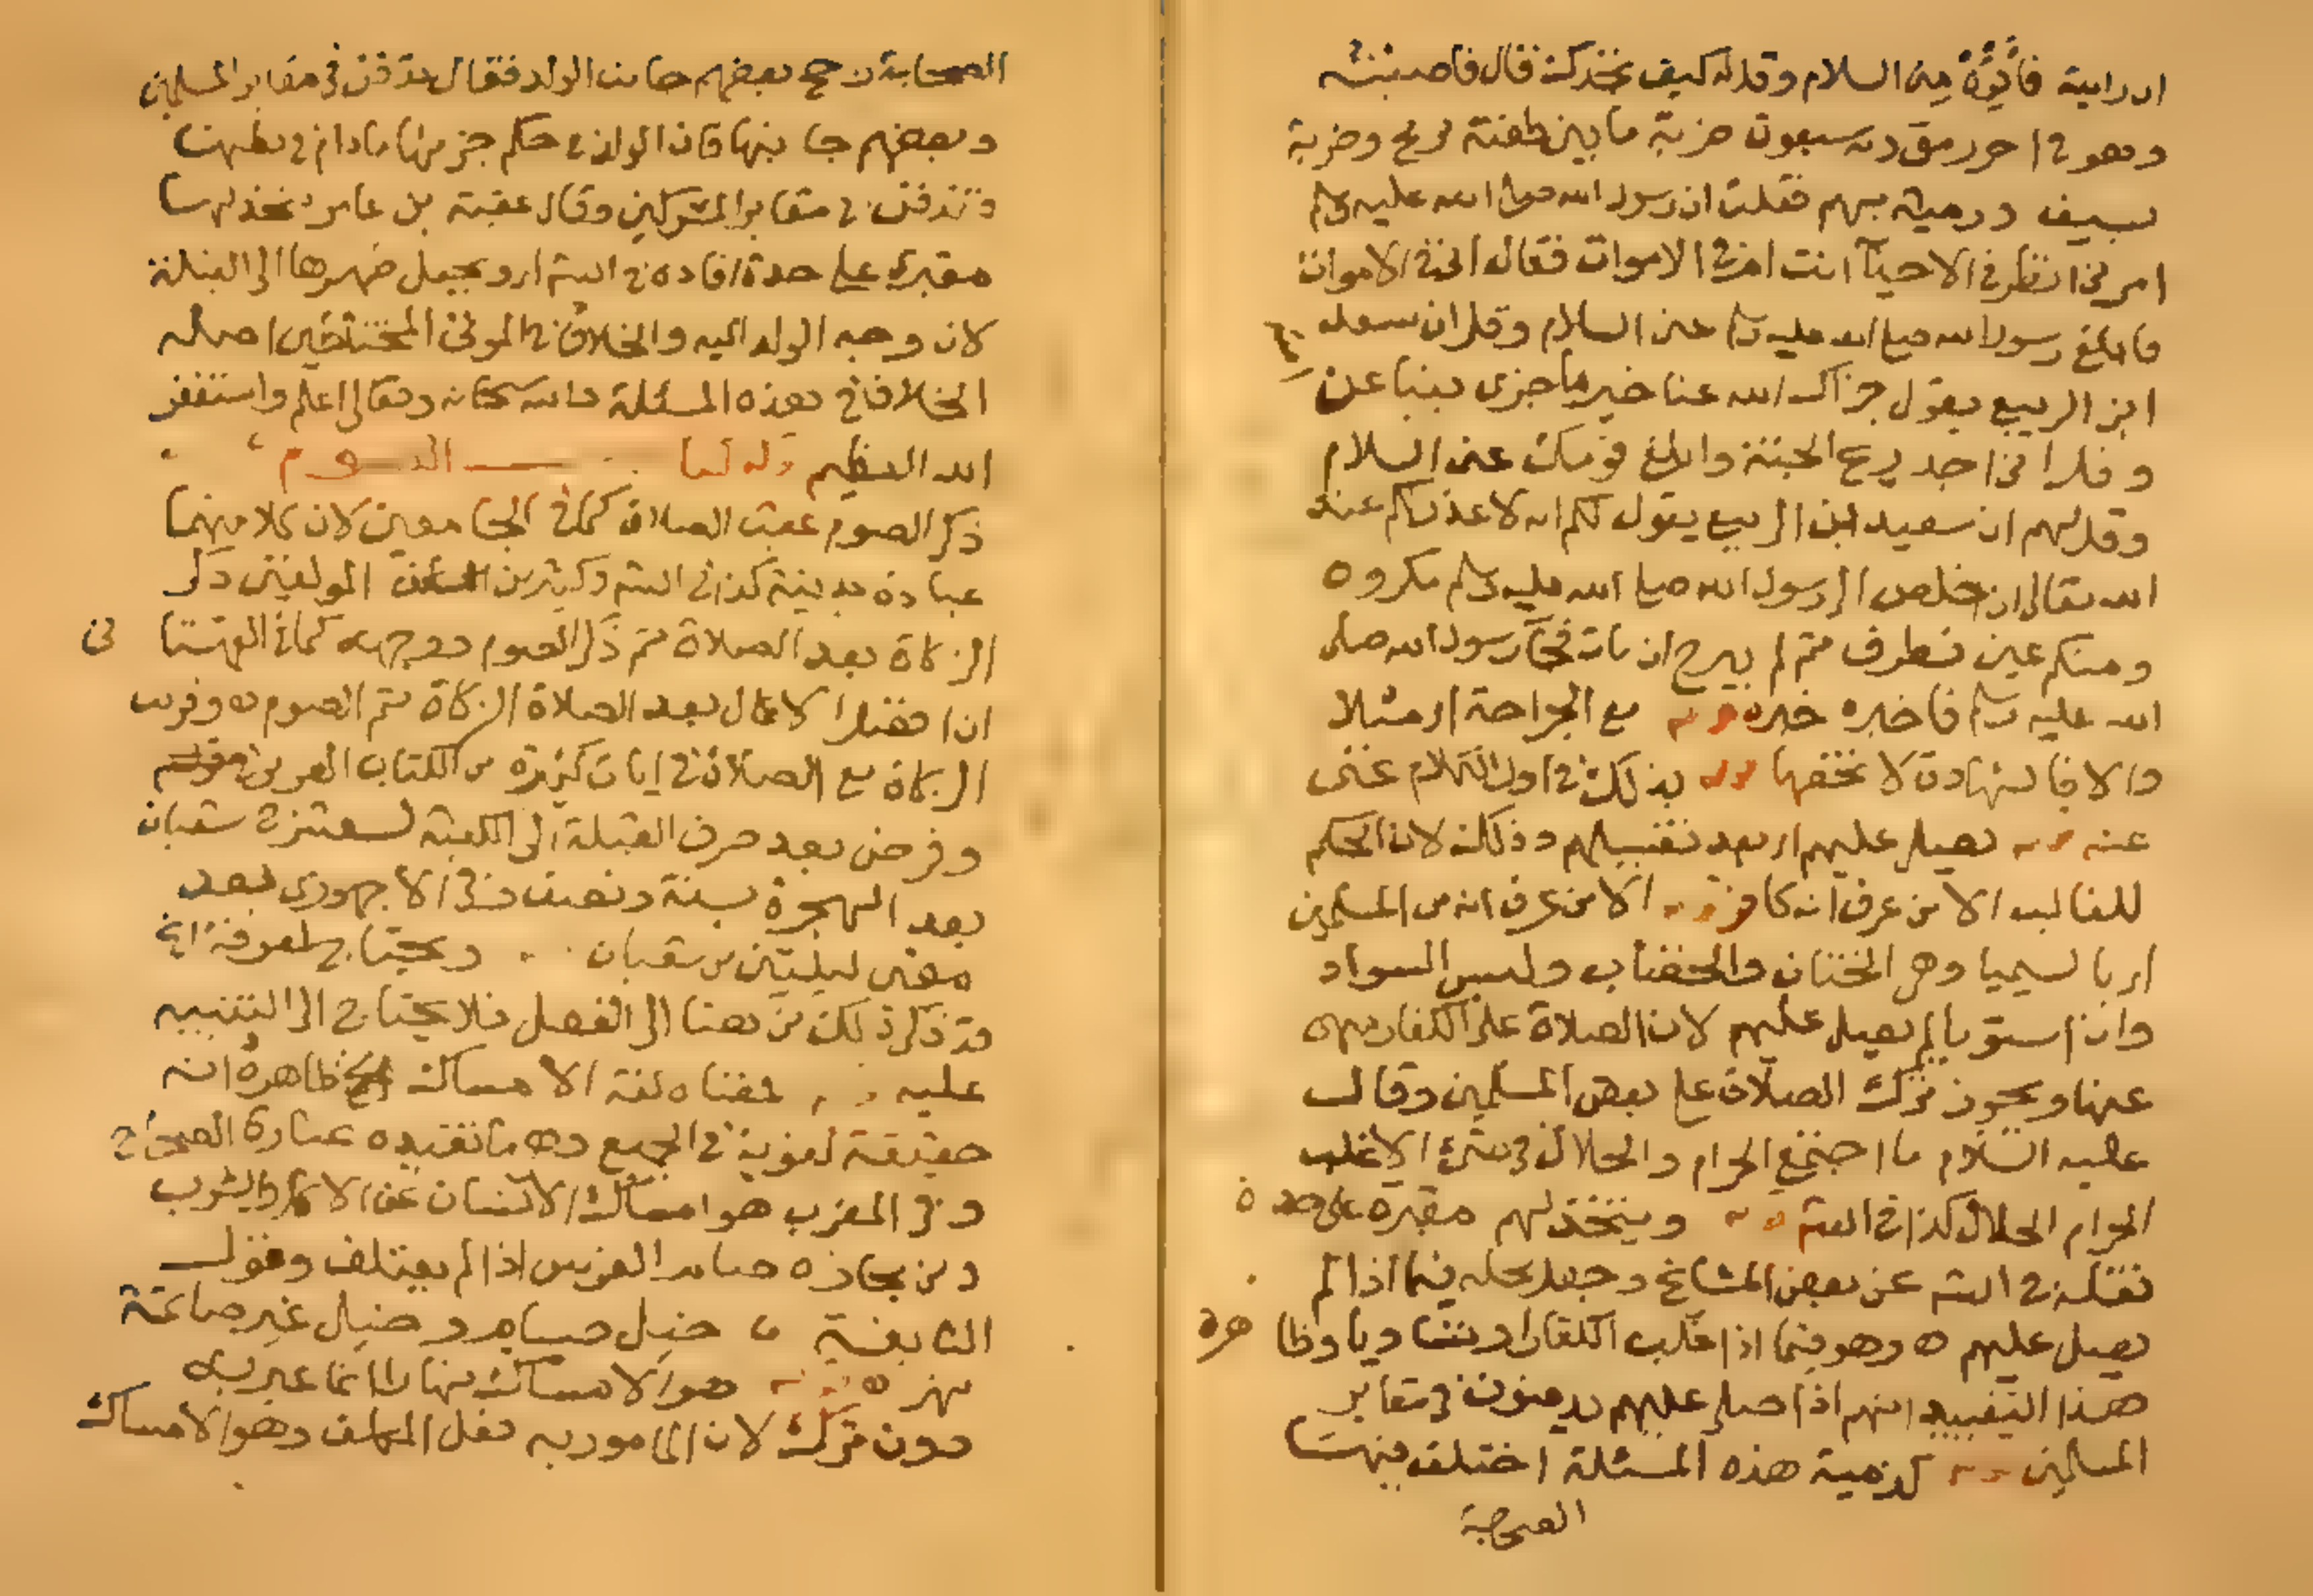 ان رايته فأقرئه مني السلام وقل له كيف تجدك قال فاصبته
وهو في اخر رمق وبه سبعون ضربة ما بين طعنة رمح وضربة
بسيف ورمية بسهم فقلت ان رسول الله صلى الله عليه وسلم
امرني انظر في الاحياء انت ام في الاموات فقال انا في الاموات
فابلغ رسول الله صلى الله عليه وسلم عني السلام وقل ان سعد
ابن الربيع يقول جزاك الله عنا خير ما جزى نبيا عن
وقل اني اجد ريح الجنة وابلغ قومك عني السلام
وقل لهم ان سعيد ابن الربيع يقول لكم انه لا عذر لكم عند
الله تعالى ان خلص الى رسول الله صلى الله عليه وسلم مكروه
ومنكم عين تطرف ثم لم يبرح ان مات فجاء رسول الله صلى
الله عليه وسلم فاخبره خبره مع الجراحة ار مثلا
والا فالشهادة لا تخفها بذلك في اول الكلام غنى
عنه يصلى عليهم ار بعد تغسيلهم وذلك لان الحكم
للغالب الا من عرف انه كافر الا من عرف انه من المسلمين
ار بالسيميا وهي الختان والخضاب ولبس السواد
وان استويا لم يصل عليهم لان الصلاة على الكفار منهى
عنها ويجوز ترك الصلاة على بعض المسلمين وقال
عليه السلام ما اجتمع الحرام والحلال في شئ الا غلب
الحرام الحلال كذا في ويتخذ لهم مقبرة على حدة
نقله في عن بعض المشايخ وجعل محله فيما اذا لم
يصل عليهم وهو فيما اذا غلب الكفار او تساويا وظا هره
هذا التقييد انهم اذا صلى عليهم يدفنون في مقابر
المسلمين كذمية هذه المسئلة اختلف فيها
الصحابة
الصحابة رجح بعضهم جانب الولد فقال تدفن في مقابر المسلمين
وبعضهم جانبها فان الولد في حكم جزء منها ما دام في بطنها
وتدفن في مقابر المشركين وقال عقبة بن عامر يتخذ لها
مقبرة على حدة افاده في ار ويجعل ظهرها الى القبلة
لان وجه الولد اليه والخلاف في الموتى المختلطين اصله
الخلاف في هذه المسئلة والله سبحانه وتعالى اعلم واستغفر
الله العظيم الصوم
ذكر الصوم عقب الصلاة كما في الجامعين لان كلا منهما
عبادة بدنية كذا في وكثير من المولفين ذكر
الزكاة بعد الصلاة ثم ذكر الصوم ووجهه كما في القهستا نى
ان افضل الاعمال بعد الصلاة الزكاة ثم الصوم وقرن
الزكاة مع الصلاة في ايات كثيرة من الكتاب
وفرض بعد صرف القبلة الى الكعبة لعشر في شعبان
بعد الهجرة بسنة ونصف الاجهوري بعد
مضى ليلتين من شعبان ويحتاج لمعرفة الخ
قد ذكر ذلك من هنا الى الفصل فلا يحتاج الى التنبيه
عليه معناه لغة الامساك الخ ظاهره انه
حقيقة لغوية في الجميع وهو ما تفيده عبارة الصحاح
وفي المغرب هو امساك الانسان عن الاكل والشرب
ومن مجازه صام الفرس اذا لم يعتلف وقول
النابغة خيل صيام و خيل غير صائمة
نهر هو الامساك نهارا انما عبر به
دون ترك لان المامور به فعل المكلف وهو الامساك